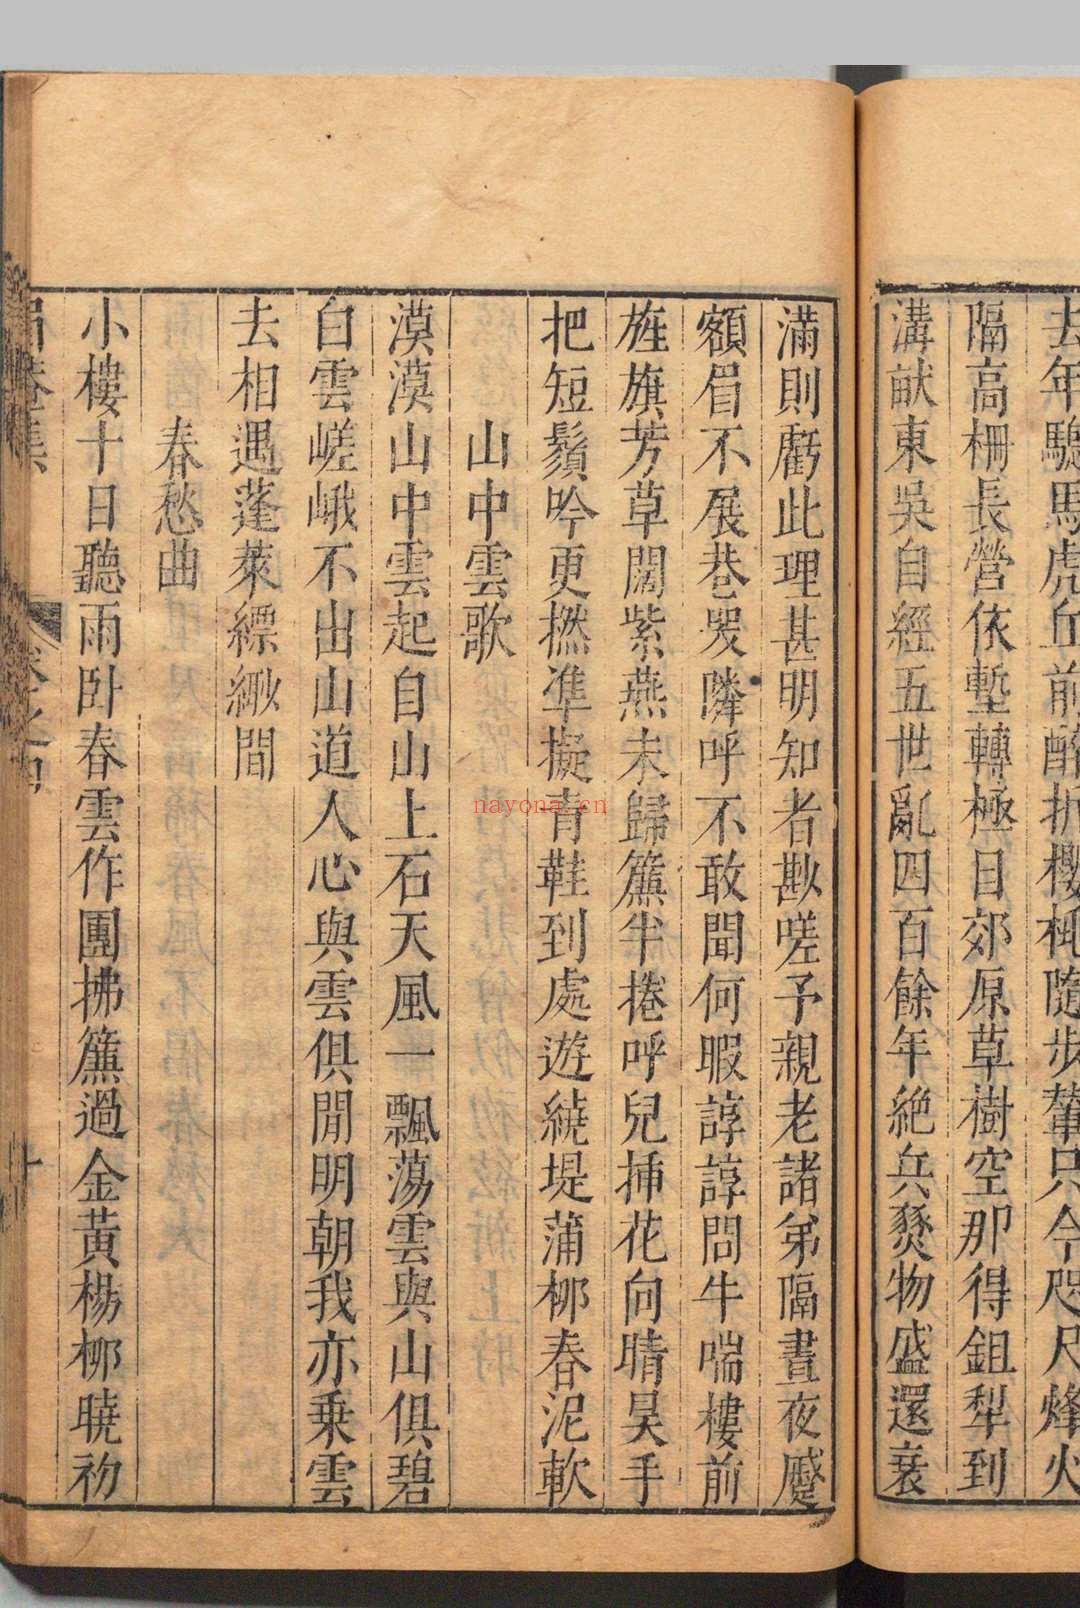 去年驄馬虎丘前醉折櫻桃隨步輦只今咫尺烽火
隔高柵長營依塹轉極目郊原草樹空那得鉏犁到
溝畎東吳自經五世亂四百餘年絕兵燹物盛還衰
滿則虧此理甚明知者尠嗟予親老諸弟隔晝夜蹙
額眉不展巷哭隣呼不敢聞何暇諄諄問牛喘樓前
旌旗芳草闊紫燕未歸簾半捲呼兒揷花向晴昊手
把短鬚吟更撚準擬青鞋到處遊繞堤蒲柳春泥軟
山中雲歌
漠漠山中雲起自山上石天風一飄蕩雲與山俱碧
白雲嵯峨不出山道人心與雲俱閒明朝我亦乗雲
去相遇蓬萊縹緲間
春愁曲
小樓十日聽雨卧春雲作團拂簾過金黃楊柳曉初
卷之四
十
nayona.cn